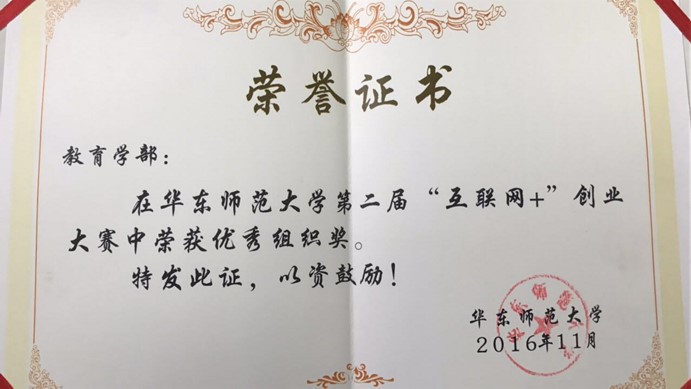 荣誉证书
教育学部：
在华东师范大学第二届“互联网+”创业
大赛中荣获优秀组织奖。
特发此证，以资鼓励！
华东师范大学
2016年11月